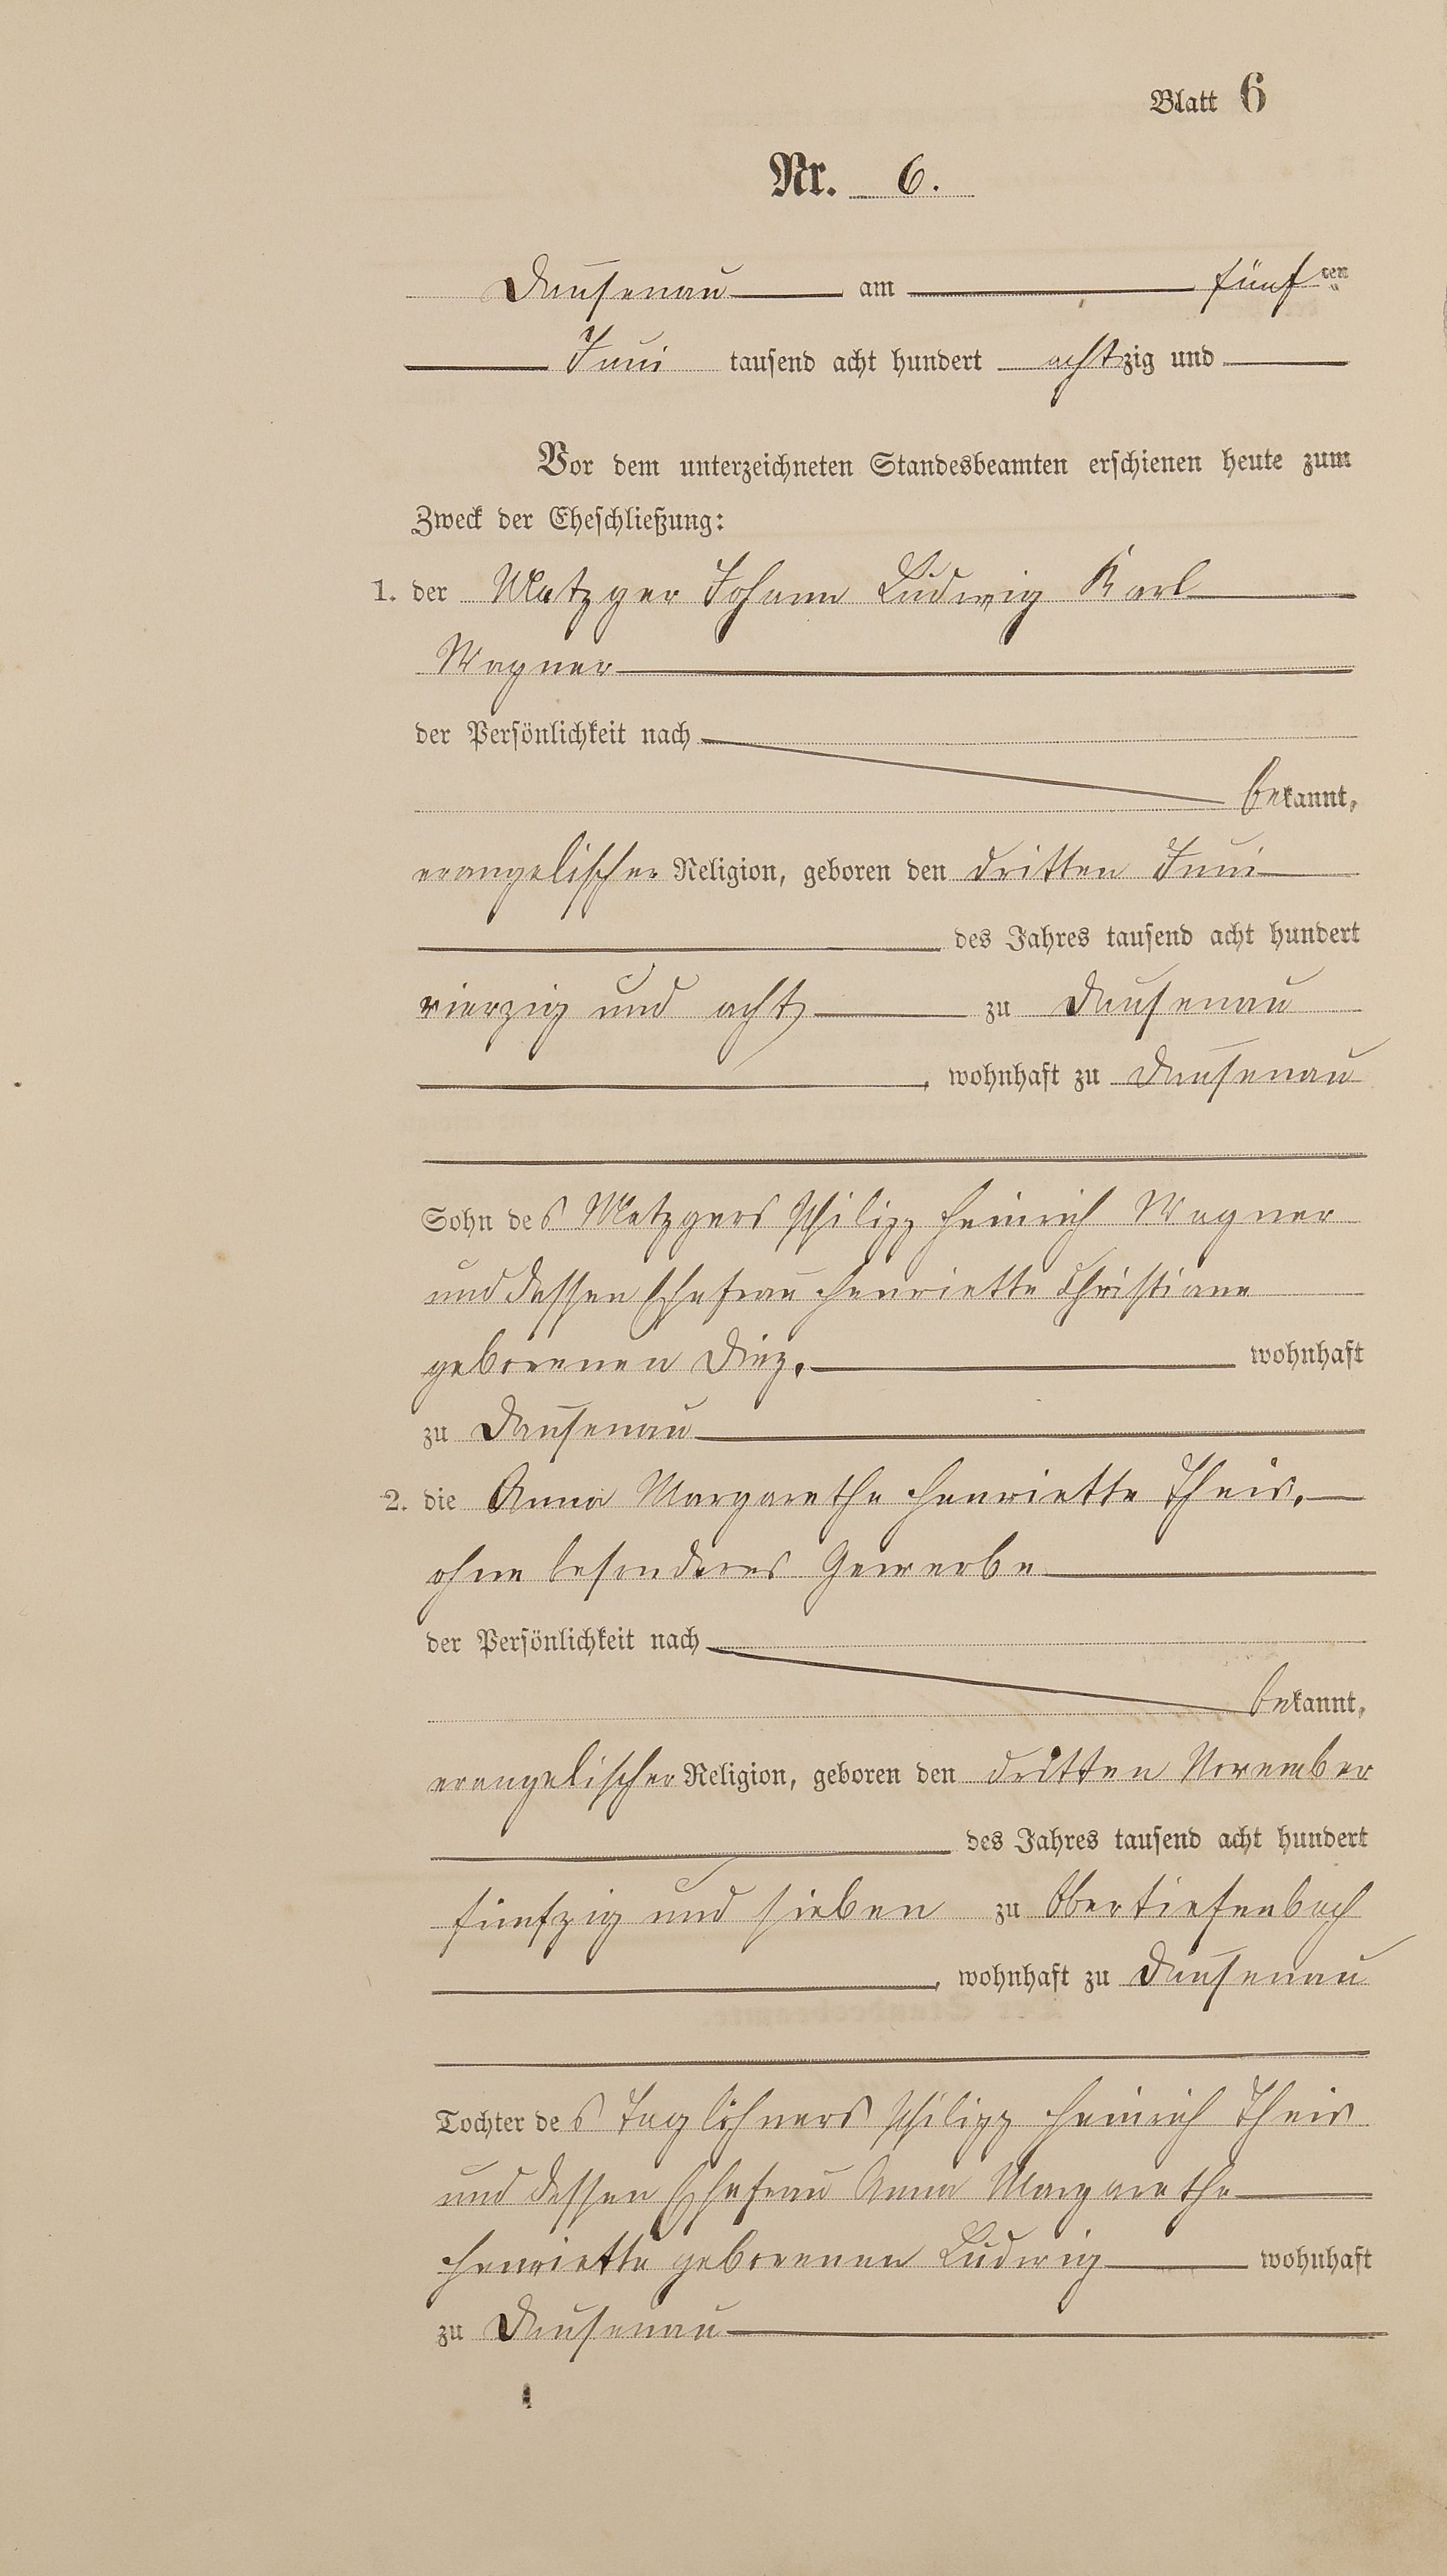 Blatt 6
Nr. 6.
Dausenau am fünf ten
Juni tausend acht hundert achtzig und
Vor dem unterzeichneten Standesbeamten erschienen heute zum
Zweck der Eheschließung:
1. der Metzger Johann Ludwig Karl
Wagner
der Persönlichkeit nach
bekannt,
evangelischer Religion, geboren den dritten Juni
des Jahres tausend acht hundert
vierzig und acht zu Dausenau
, wohnhaft zu Dausenau
Sohn des Metzgers Philipp Heinrich Wagner
und dessen Ehefrau Henriette Christiane
geborenen Diez. wohnhaft
zu Dausenau
2. die Anna Margarethe Henriette Theis,
ohne besonderes Gewerbe
der Persönlichkeit nach
bekannt,
evangelischer Religion, geboren den dritten November
des Jahres tausend acht hundert
fünfzig und sieben zu Obertiefenbach
, wohnhaft zu Dausenau
Tochter des Taglöhners Philipp Heinrich Theis
und dessen Ehefrau Anna Margarethe
Henriette geborenen Ludwig wohnhaft
zu Dausenau